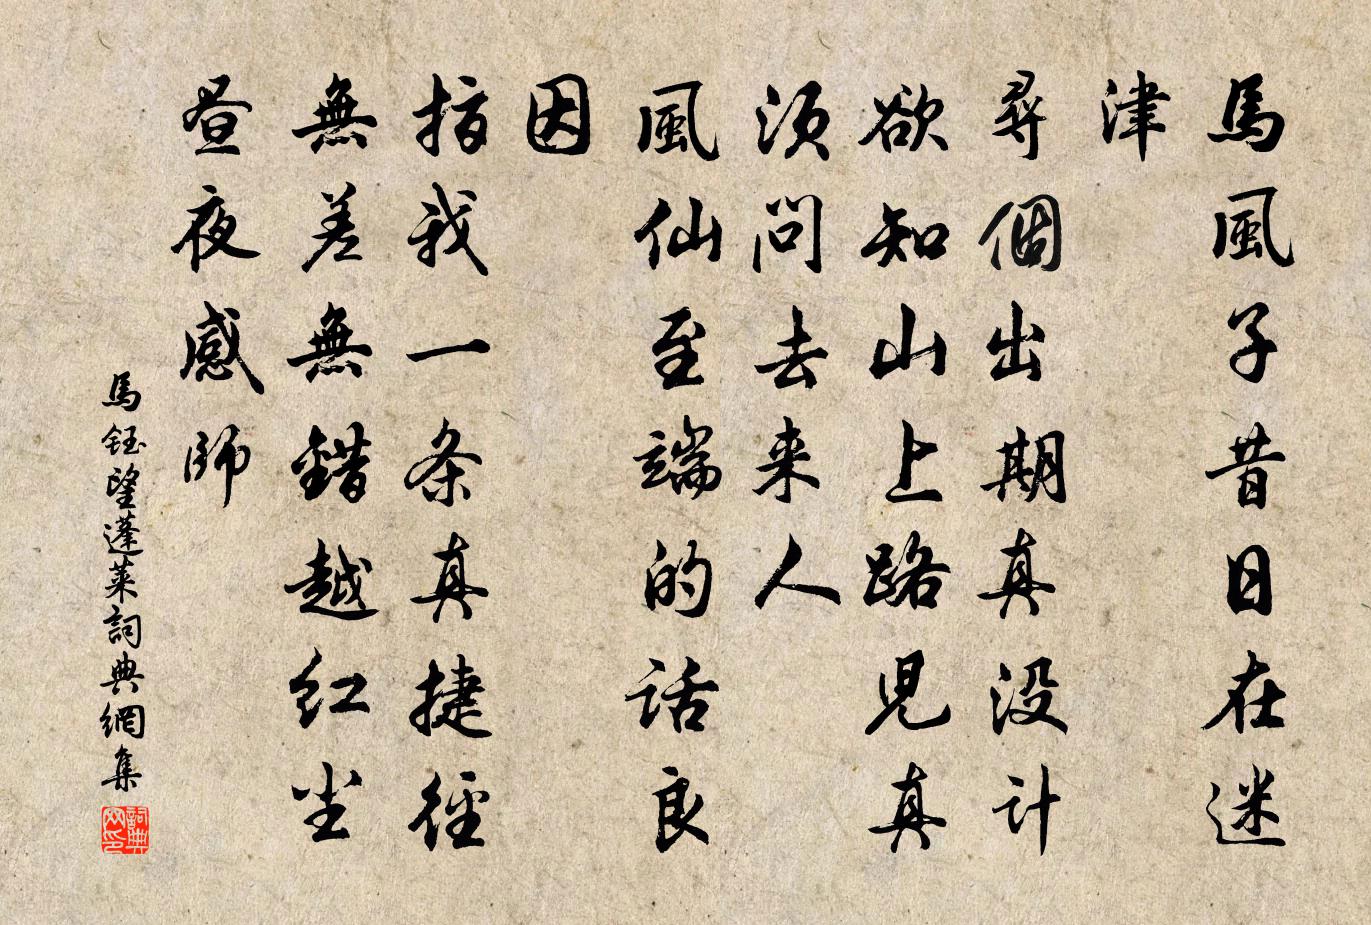 馬風子昔日在迷
津
尋個出期真没计
欲知山上路見真
須問去来人
風仙至端的话良
因
指我一条真捷徑
無差無錯越红尘
昼夜感師
馬鈺望蓬萊詞典網集
詞典
网印